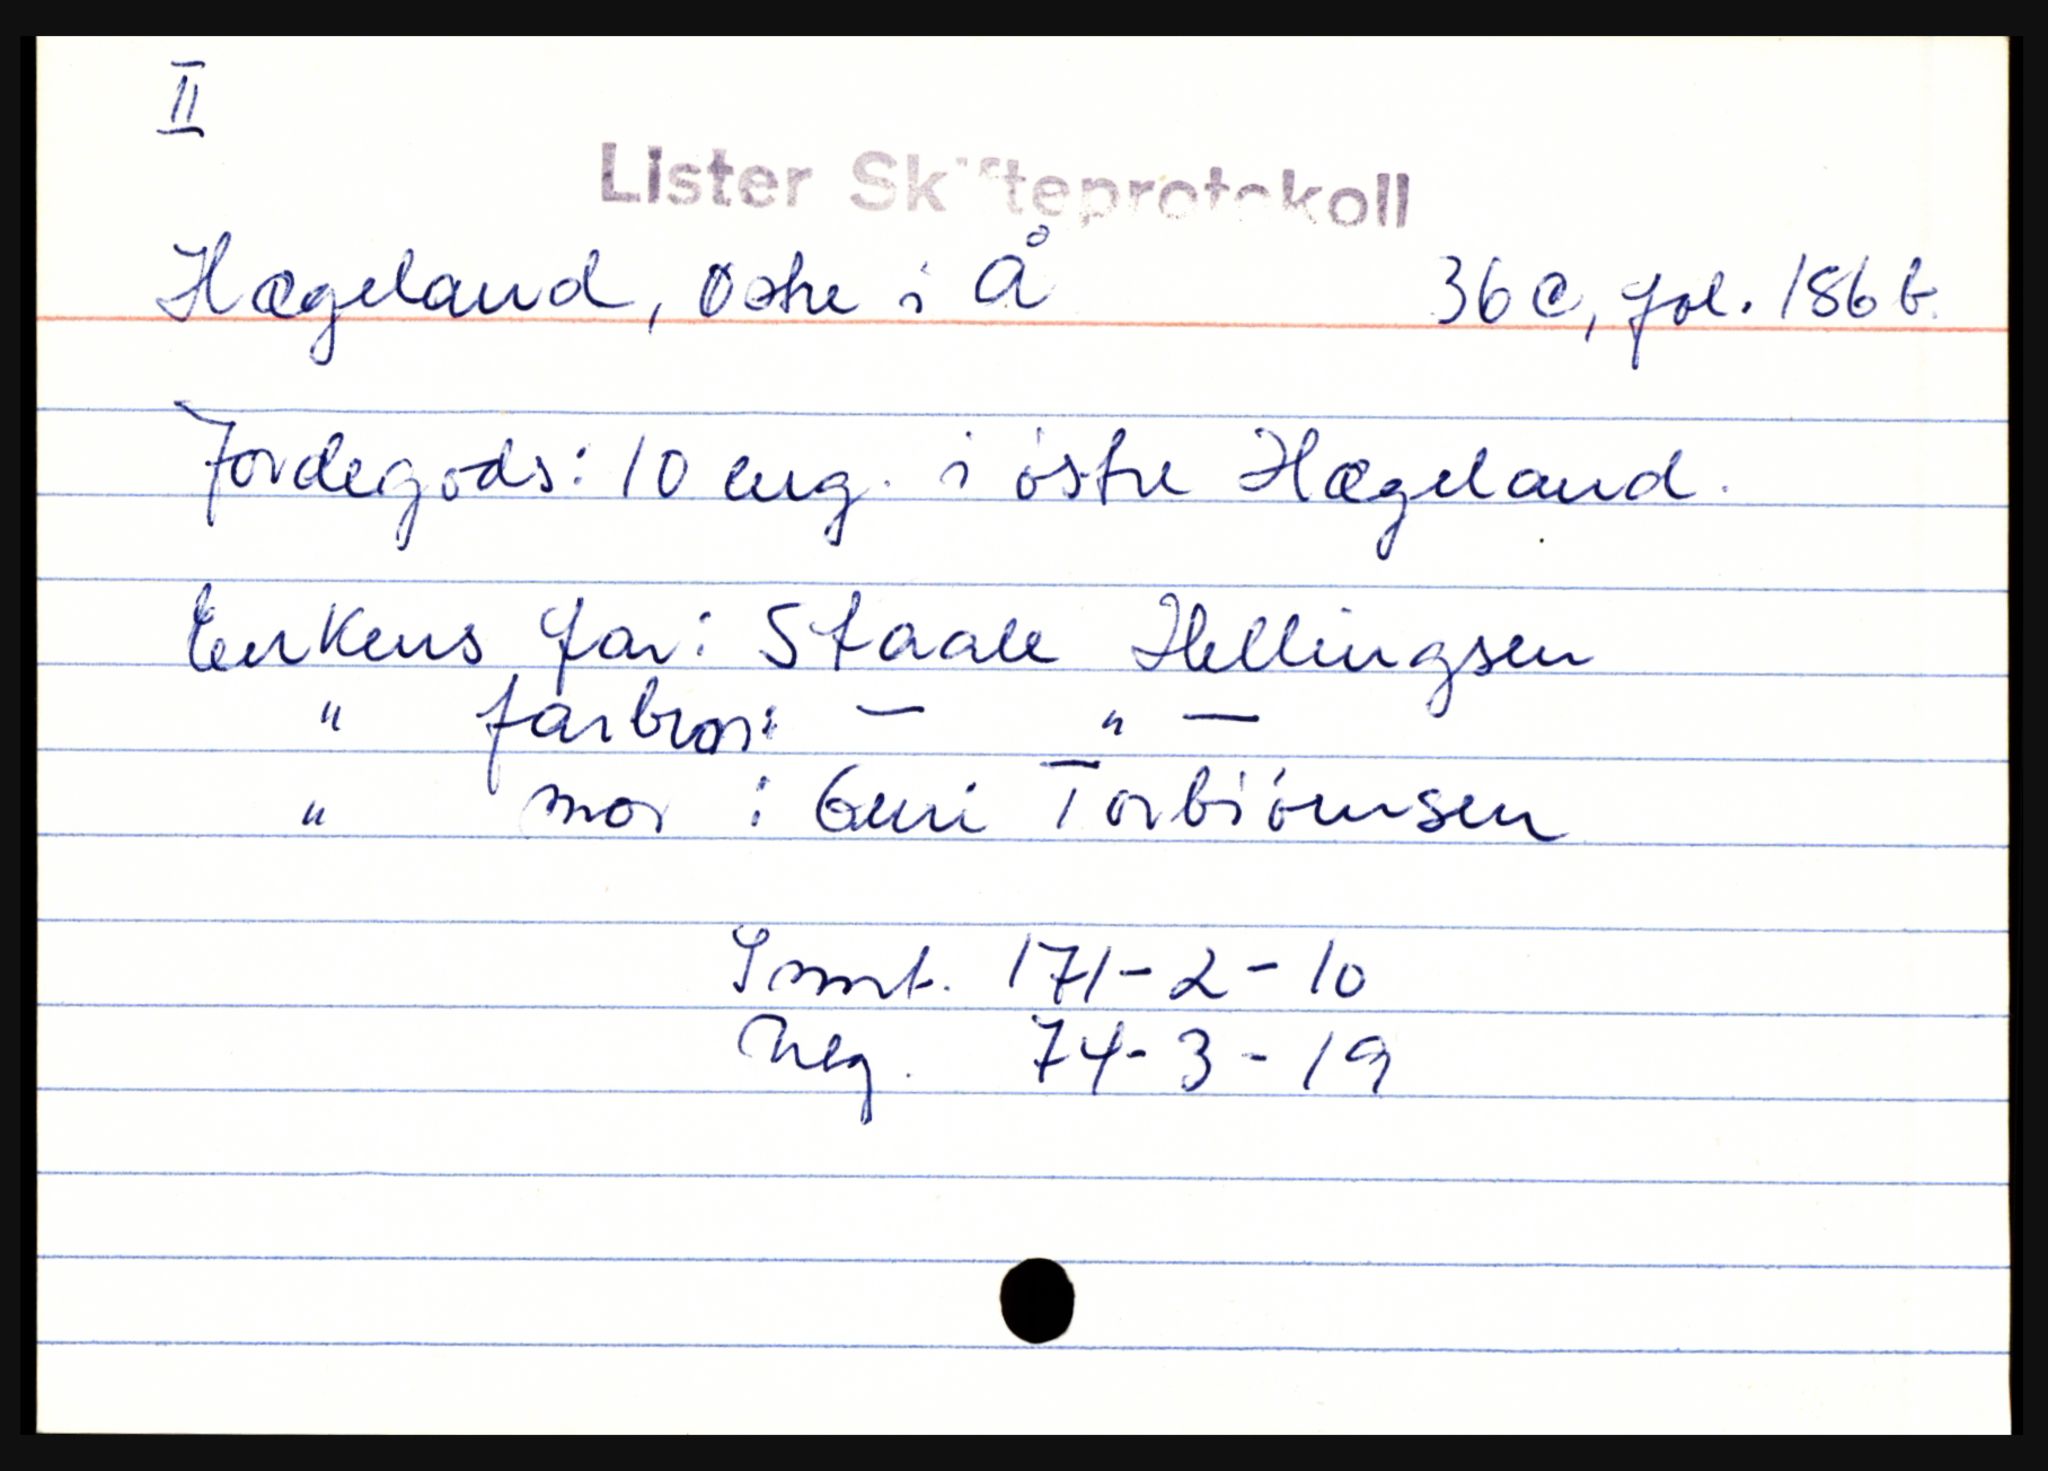 II
Lister Skifteprotokoll
Hægeland, Østre i Å 36c, fol. 186b.
Jordegods: 10 eng. i østre Hægeland.
Enkens far: Staale Hellingsen
" farbror: — " —
" mor: Guri Torbiörnsen
Smt. 171-2-10
Neg. 74-3-19